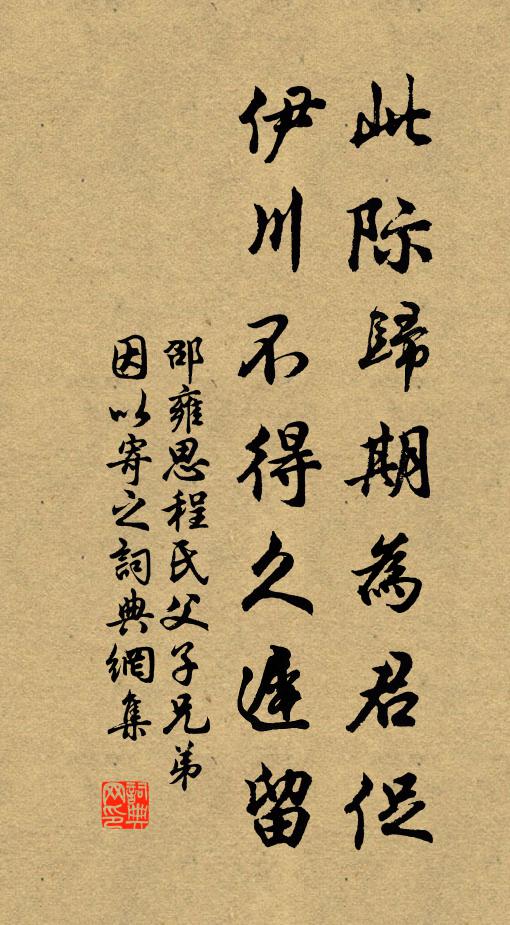 此际歸期為君促
伊川不得久遲留
邵雍思程氏父子兄弟
因以寄之詞典網集
詞典网印